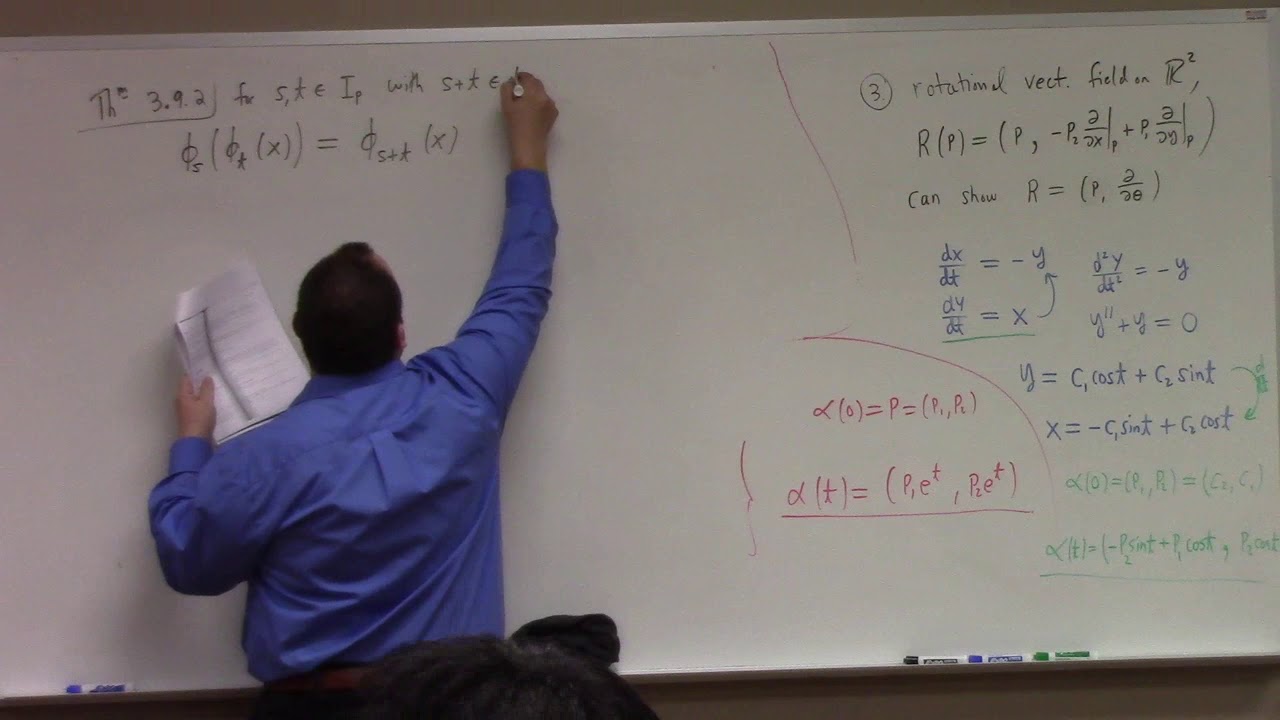 Thᵐ 3.9.2 for s,t ∈ I_p with s+t ∈
ϕ_s(ϕ_t(x)) = ϕ_{s+t}(x)
③ rotational vect. field on ℝ²,
R(P) = (P, -P₂ ∂/∂x|_p + P₁ ∂/∂y|_p)
can show R = (P, ∂/∂θ)
dx/dt = -y
dy/dt = x
d²y/dt² = -y
y'' + y = 0
y = c₁cost + c₂sint
d/dt
x = -c₁sint + c₂cost
α(0) = (P₁, P₂) = (c₂, c₁)
α(t) = (-P₂sint + P₁cost, P₂cost
α(0) = P = (P₁, P₂)
α(t) = (P₁eᵗ, P₂eᵗ)